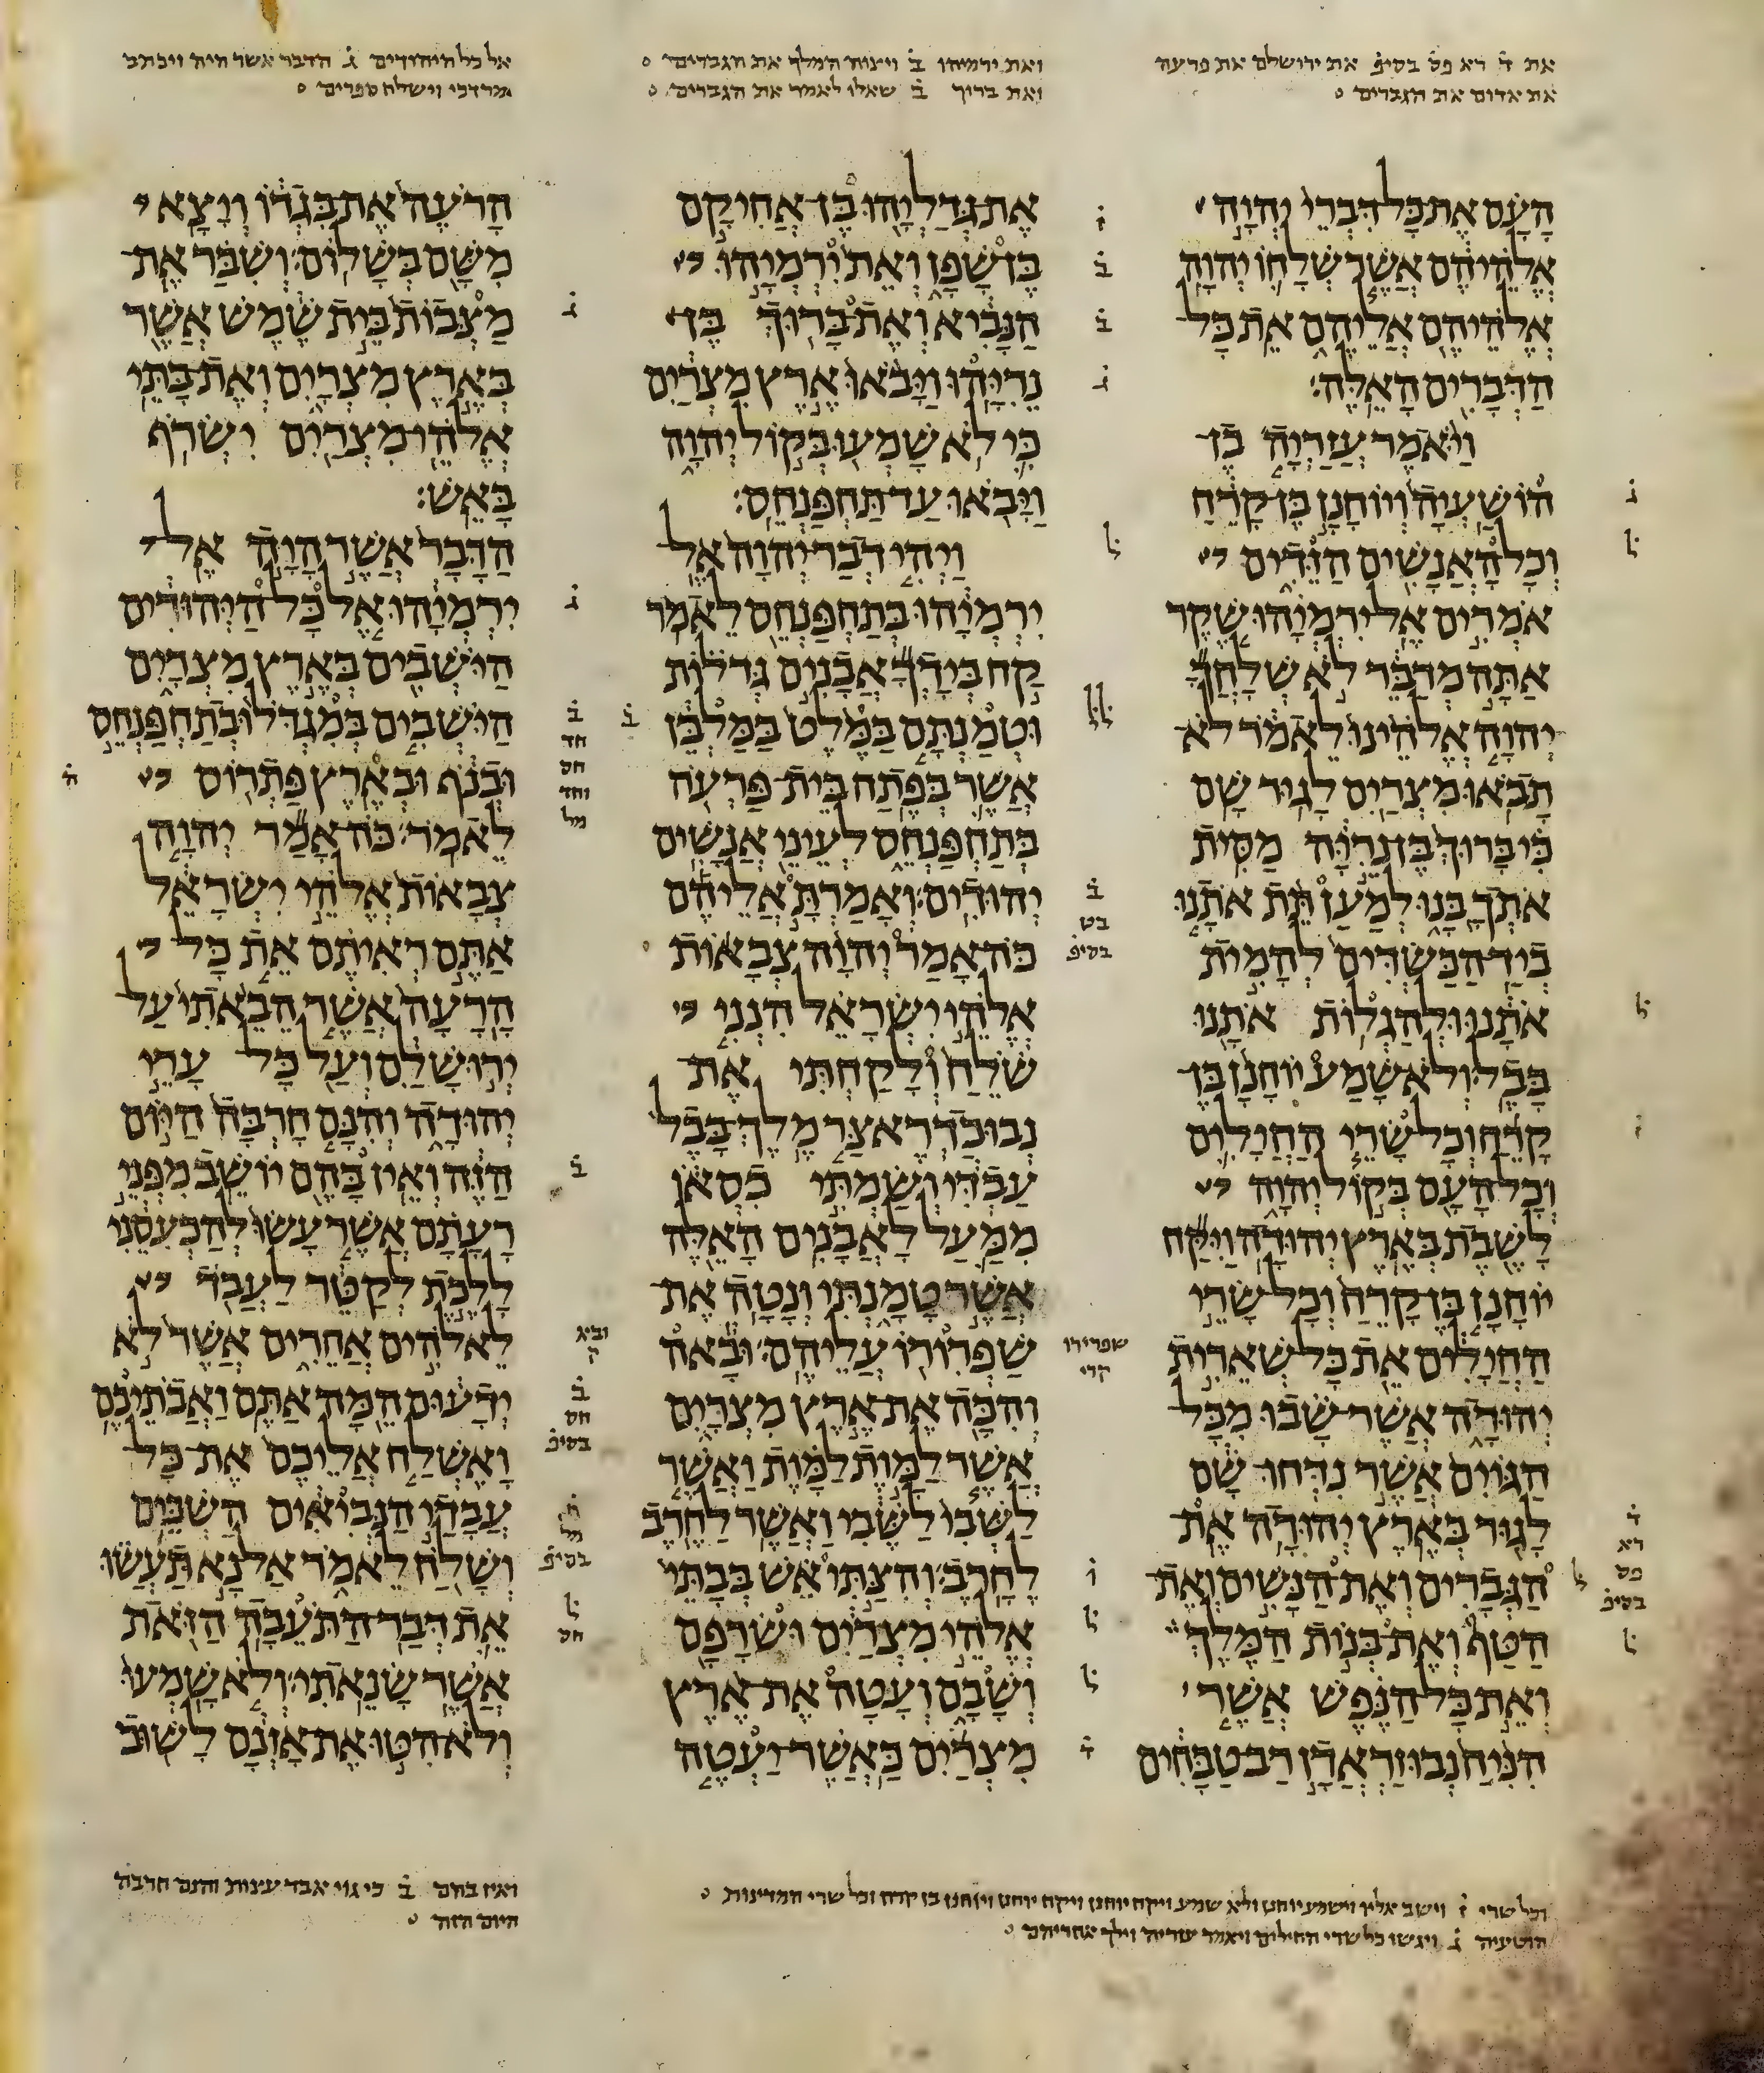 את ד̇ רא פס̇ בסיפ̇ את ירושלם את פרעה
את אדום את הגברים
ואת ירמיהו ב̇ ויצוה המלך את הגברים
ואת ברוך ב̇ שאלו לאמר את הגברים
אל כל היהודים ג̇ הדבר אשר היה ויכתב
מרדכי וישלח ספרים
הָעָם אֶת כָּל דִּבְרֵי יְהוָה
אֱלֹהֵיהֶם אֲשֶׁר שְׁלָחוֹ יְהוָה
אֱלֹהֵיהֶם אֲלֵיהֶם אֵת כָּל
הַדְּבָרִים הָאֵלֶּה׃
וַיֹּאמֶר עֲזַרְיָה בֶן
הוֹשַׁעְיָה וְיוֹחָנָן בֶּן קָרֵחַ
וְכָל הָאֲנָשִׁים הַזֵּדִים
אֹמְרִים אֶל יִרְמְיָהוּ שֶׁקֶר
אַתָּה מְדַבֵּר לֹא שְׁלָחֲךָ
יְהוָה אֱלֹהֵינוּ לֵאמֹר לֹא
תָבֹאוּ מִצְרַיִם לָגוּר שָׁם
כִּי בָּרוּךְ בֶּן נֵרִיָּה מַסִּית
אֹתְךָ בָּנוּ לְמַעַן תֵּת אֹתָנוּ
בְיַד הַכַּשְׂדִּים לְהָמִית
אֹתָנוּ וּלְהַגְלוֹת אֹתָנוּ
בָּבֶל׃ וְלֹא שָׁמַע יוֹחָנָן בֶּן
קָרֵחַ וְכָל שָׂרֵי הַחֲיָלִים
וְכָל הָעָם בְּקוֹל יְהוָה
לָשֶׁבֶת בְּאֶרֶץ יְהוּדָה׃ וַיִּקַּח
יוֹחָנָן בֶּן קָרֵחַ וְכָל שָׂרֵי
הַחֲיָלִים אֵת כָּל שְׁאֵרִית
יְהוּדָה אֲשֶׁר שָׁבוּ מִכָּל
הַגּוֹיִם אֲשֶׁר נִדְּחוּ שָׁם
לָגוּר בְּאֶרֶץ יְהוּדָה׃ אֶת
הַגְּבָרִים וְאֶת הַנָּשִׁים וְאֶת
הַטַּף וְאֶת בְּנוֹת הַמֶּלֶךְ
וְאֵת כָּל הַנֶּפֶשׁ אֲשֶׁר
הִנִּיחַ נְבוּזַרְאֲדָן רַב טַבָּחִים
אֶת גְּדַלְיָהוּ בֶּן אֲחִיקָם
בֶּן שָׁפָן וְאֵת יִרְמְיָהוּ
הַנָּבִיא וְאֶת בָּרוּךְ בֶּן
נֵרִיָּהוּ׃ וַיָּבֹאוּ אֶרֶץ מִצְרַיִם
כִּי לֹא שָׁמְעוּ בְּקוֹל יְהוָה
וַיָּבֹאוּ עַד תַּחְפַּנְחֵס׃
וַיְהִי דְבַר יְהוָה אֶל
יִרְמְיָהוּ בְּתַחְפַּנְחֵס לֵאמֹר׃
קַח בְּיָדְךָ אֲבָנִים גְּדֹלוֹת
וּטְמַנְתָּם בַּמֶּלֶט בַּמַּלְבֵּן
אֲשֶׁר בְּפֶתַח בֵּית פַּרְעֹה
בְּתַחְפַּנְחֵס לְעֵינֵי אֲנָשִׁים
יְהוּדִים׃ וְאָמַרְתָּ אֲלֵיהֶם
כֹּה אָמַר יְהוָה צְבָאוֹת
אֱלֹהֵי יִשְׂרָאֵל הִנְנִי
שֹׁלֵחַ וְלָקַחְתִּי אֶת
נְבוּכַדְרֶאצַּר מֶלֶךְ בָּבֶל
עַבְדִּי וְשַׂמְתִּי כִסְאוֹ
מִמַּעַל לָאֲבָנִים הָאֵלֶּה
אֲשֶׁר טָמָנְתִּי וְנָטָה אֶת
שַׁפְרוּרוֹ עֲלֵיהֶם׃ וּבָאה
וְהִכָּה אֶת אֶרֶץ מִצְרָיִם
אֲשֶׁר לַמָּוֶת לַמָּוֶת וַאֲשֶׁר
לַשְּׁבִי לַשֶּׁבִי וַאֲשֶׁר לַחֶרֶב
לֶחָרֶב׃ וְהִצַּתִּי אֵשׁ בְּבָתֵּי
אֱלֹהֵי מִצְרַיִם וּשְׂרָפָם
וְשָׁבָם וְעָטָה אֶת אֶרֶץ
מִצְרַיִם כַּאֲשֶׁר יַעְטֶה
הָרֹעֶה אֶת בִּגְדוֹ וְיָצָא
מִשָּׁם בְּשָׁלוֹם׃ וְשִׁבַּר אֶת
מַצְּבוֹת בֵּית שֶׁמֶשׁ אֲשֶׁר
בְּאֶרֶץ מִצְרָיִם וְאֶת בָּתֵּי
אֱלֹהֵי מִצְרַיִם יִשְׂרֹף
בָּאֵשׁ׃
הַדָּבָר אֲשֶׁר הָיָה אֶל
יִרְמְיָהוּ אֶל כָּל הַיְּהוּדִים
הַיֹּשְׁבִים בְּאֶרֶץ מִצְרָיִם
הַיֹּשְׁבִים בְּמִגְדֹּל וּבְתַחְפַּנְחֵס
וּבְנֹף וּבְאֶרֶץ פַּתְרוֹס
לֵאמֹר׃ כֹּה אָמַר יְהוָה
צְבָאוֹת אֱלֹהֵי יִשְׂרָאֵל
אַתֶּם רְאִיתֶם אֵת כָּל
הָרָעָה אֲשֶׁר הֵבֵאתִי עַל
יְרוּשָׁלִַם וְעַל כָּל עָרֵי
יְהוּדָה וְהִנָּם חָרְבָּה הַיּוֹם
הַזֶּה וְאֵין בָּהֶם יוֹשֵׁב׃ מִפְּנֵי
רָעָתָם אֲשֶׁר עָשׂוּ לְהַכְעִסֵנִי
לָלֶכֶת לְקַטֵּר לַעֲבֹד
לֵאלֹהִים אֲחֵרִים אֲשֶׁר לֹא
יְדָעוּם הֵמָּה אַתֶּם וַאֲבֹתֵיכֶם׃
וָאֶשְׁלַח אֲלֵיכֶם אֶת כָּל
עֲבָדַי הַנְּבִיאִים הַשְׁכֵּים
וְשָׁלֹחַ לֵאמֹר אַל נָא תַעֲשׂוּ
אֵת דְּבַר הַתֹּעֵבָה הַזֹּאת
אֲשֶׁר שָׂנֵאתִי׃ וְלֹא שָׁמְעוּ
וְלֹא הִטּוּ אֶת אָזְנָם לָשׁוּב
שפרירו
קרי
וכל שרי ז̇ וישב אליו וישמע יוחנן ולא שמע ויקח יוחנן ויקח יוחנן ויוחנן בן קרח וכל שרי המדינות
הושעיה ג̇ ויגשו כל שרי החילים ויאמר עזריה וילך אחריהם
ואין בהם ב̇ כי גוי אבד עצות והנם חרבה
היום הזה